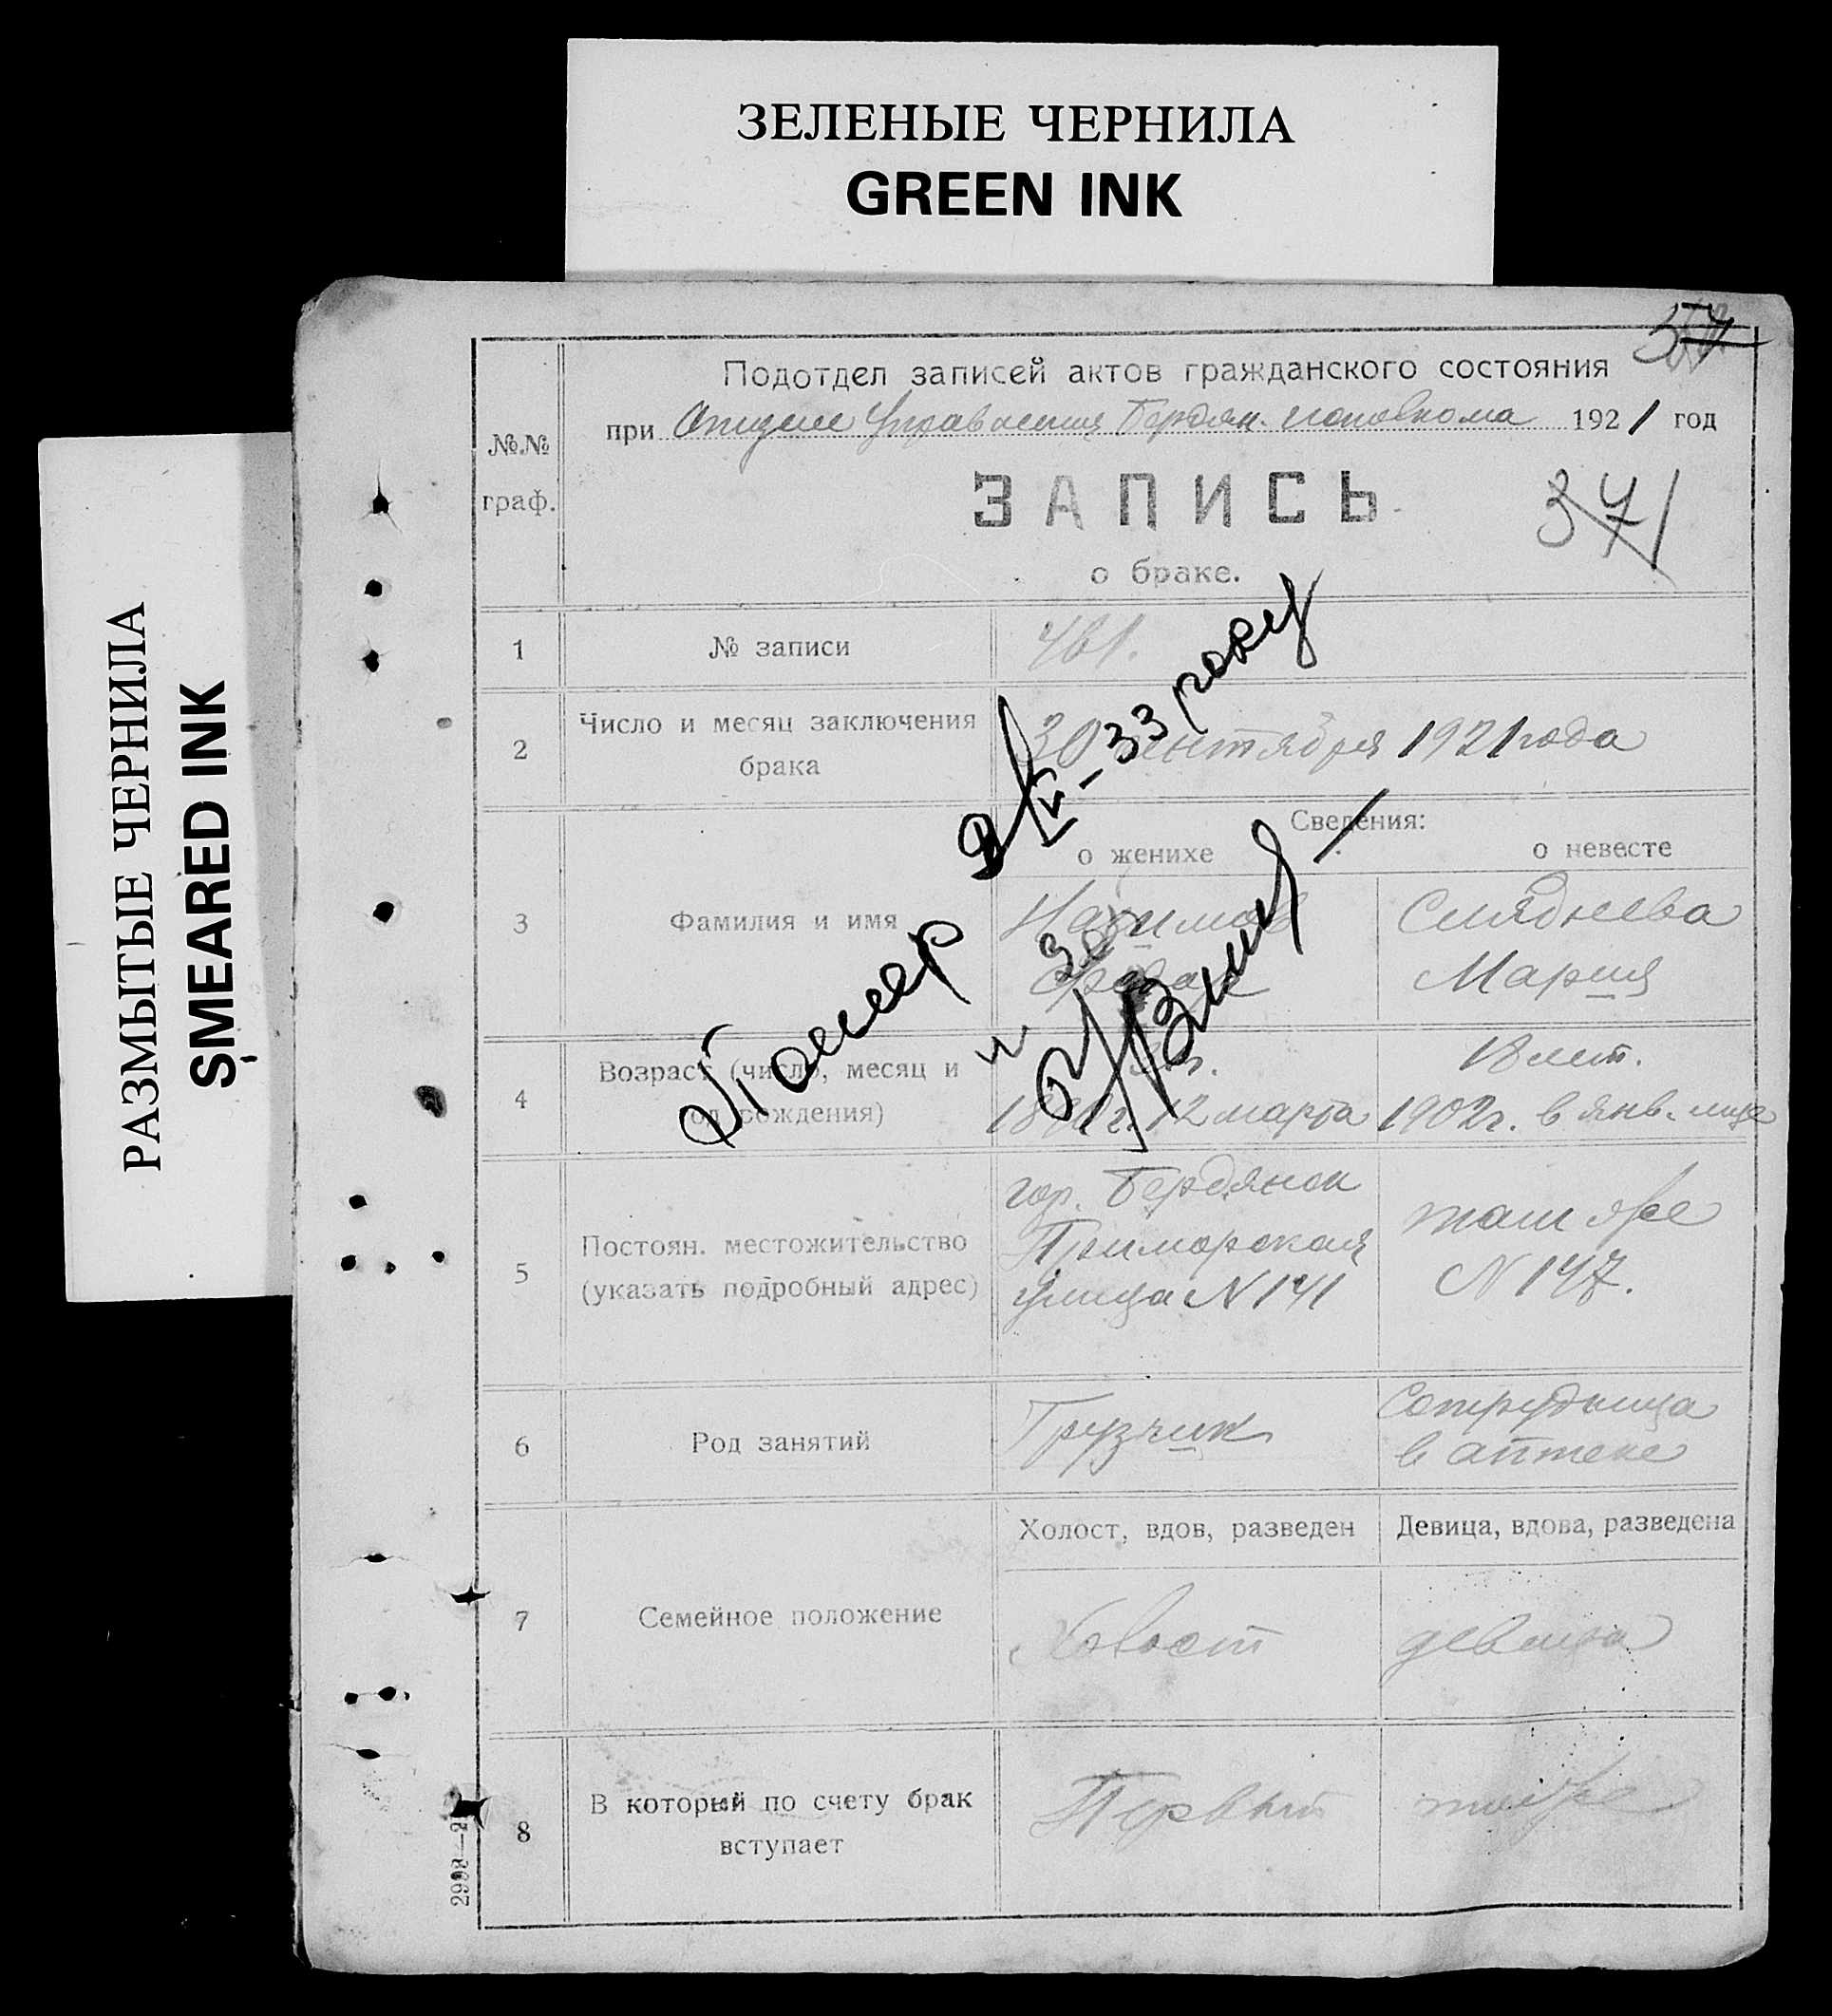 ЗЕЛЕНЫЕ ЧЕРНИЛА
GREEN INK
РАЗМЫТЫЕ ЧЕРНИЛА
SMEARED INK
Подотдел записей актов гражданского состояния
при Отделе Управления Бердян. исполкома 1921 год
№№
граф.
ЗАПИСЬ
371
о браке.
1 № записи
2 Число и месяц заключения
брака
30 сентября 1921 года
Сведения:
о женихе о невесте
3 Фамилия и имя
Мария
4 Возраст (число, месяц и
год рождения)
18 лет.
12 марта 1902 г. в янв. м-це
5 Постоян. местожительство
(указать подробный адрес)
гор. Бердянск
Приморская
улица N 141
там же
N 147.
6 Род занятий
Грузчик
Сотрудница
в аптеке
Холост, вдов, разведен Девица, вдова, разведена
7 Семейное положение
Холост девица
8 В который по счету брак
вступает
Первый тоже
Паспер
33 року